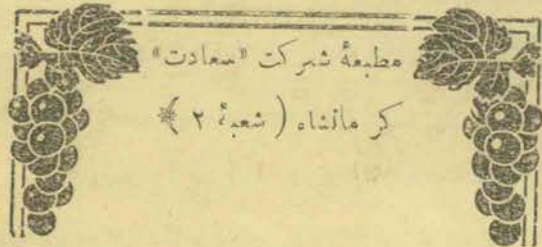 مطبعهٔ شرکت «سعادت»
کرمانشاه ( شعبهٔ ۲ )